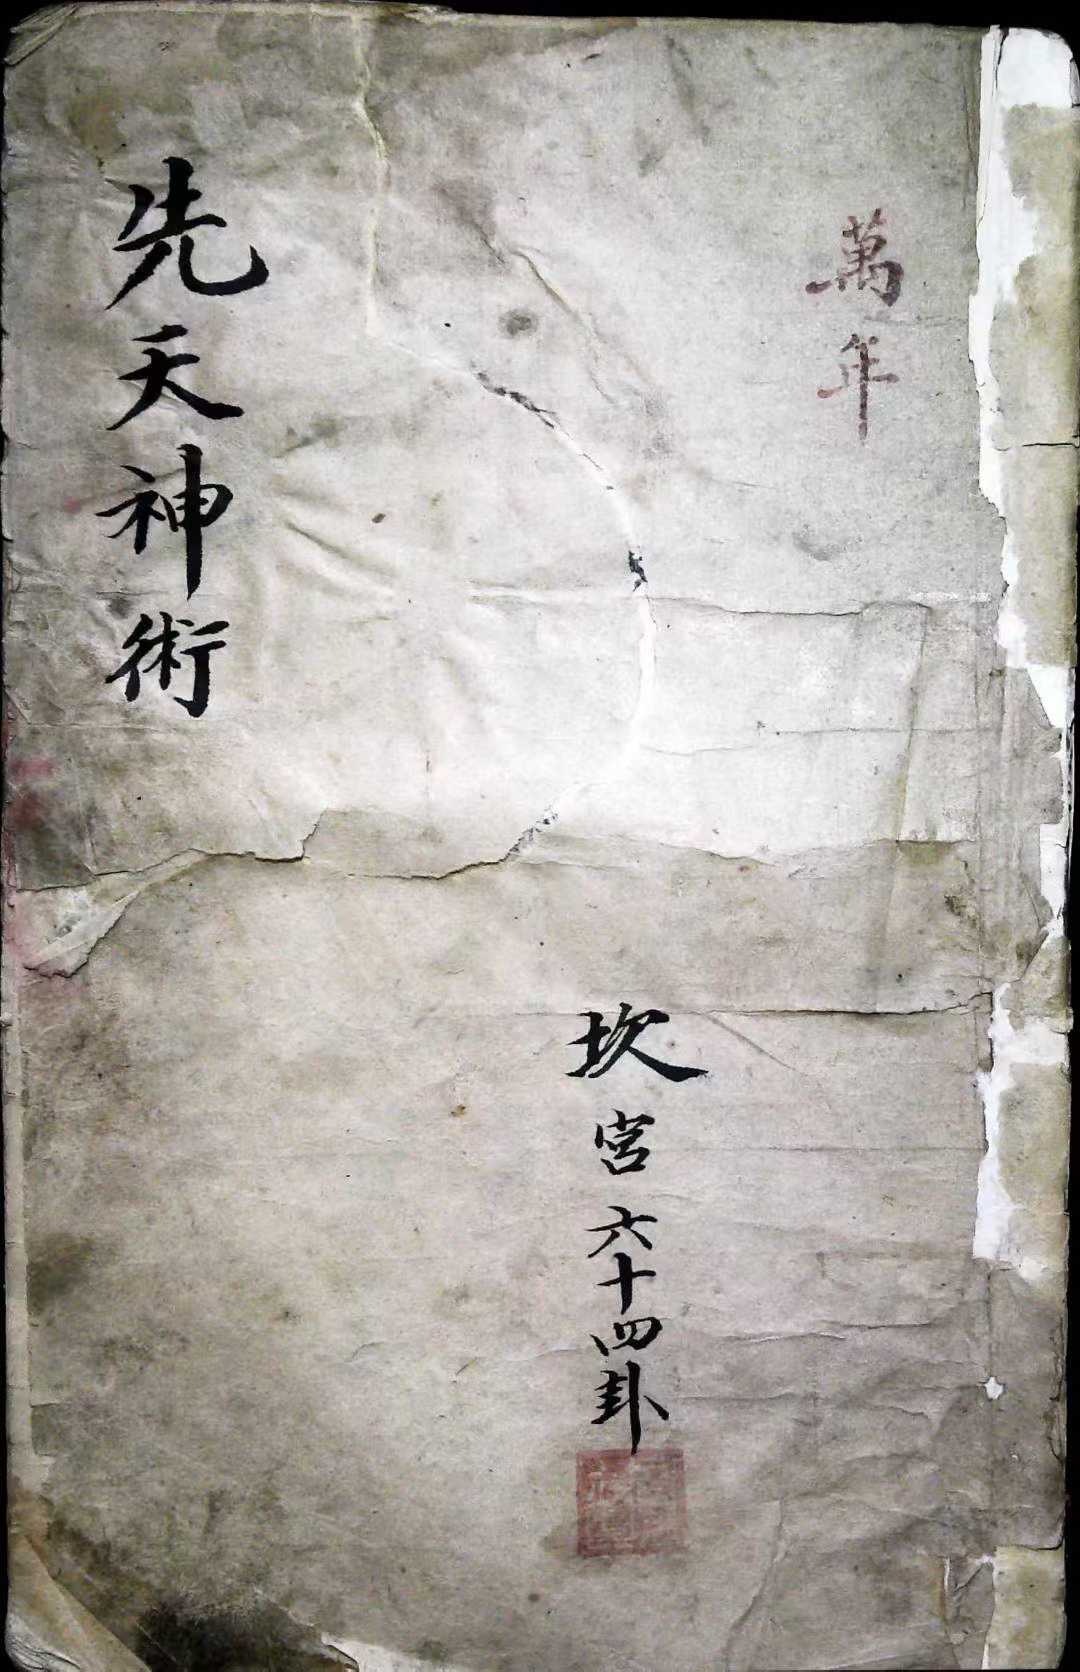 萬年
坎宮六十四卦
先天神術